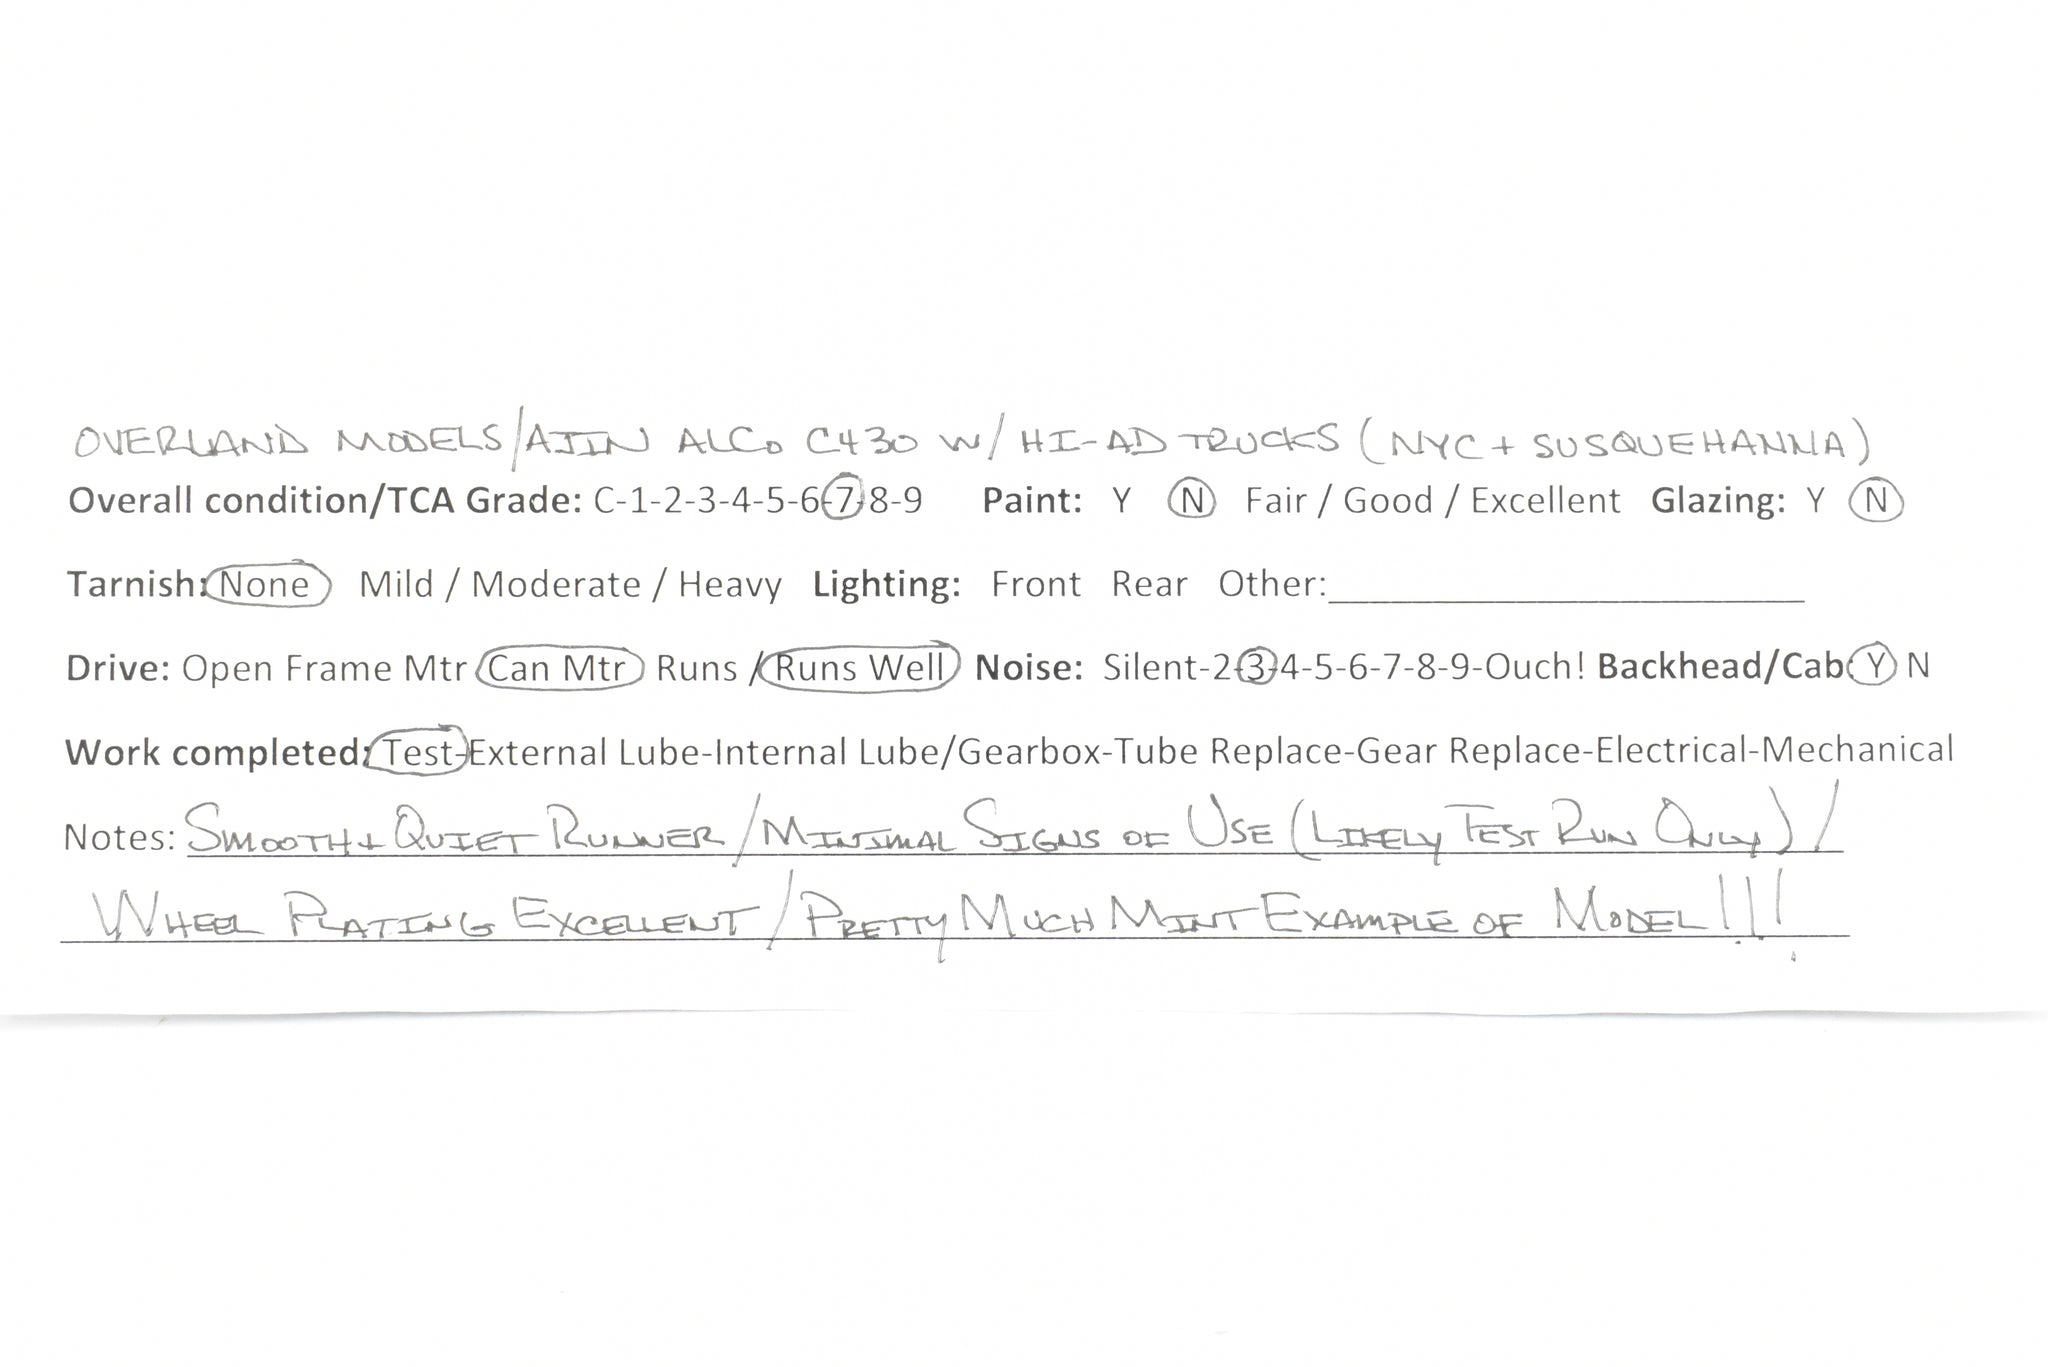 OVERLAND MODELS/AJIN ALCO C430 W/ HI-AD TRUCKS (NYC + SUSQUEHANNA)
Overall condition/TCA Grade: C-1-2-3-4-5-6-7-8-9 Paint: Y N Fair / Good / Excellent Glazing: Y N
Tarnish: None Mild / Moderate / Heavy Lighting: Front Rear Other:
Drive: Open Frame Mtr Can Mtr Runs / Runs Well Noise: Silent-2-3-4-5-6-7-8-9-Ouch! Backhead/Cab: Y N
Work completed: Test-External Lube-Internal Lube/Gearbox-Tube Replace-Gear Replace-Electrical-Mechanical
Notes: SMOOTH + QUIET RUNNER/MINIMAL SIGNS OF USE (LIKELY TEST RUN ONLY)/
WHEEL PLATING EXCELLENT/PRETTY MUCH MINT EXAMPLE OF MODEL!!!